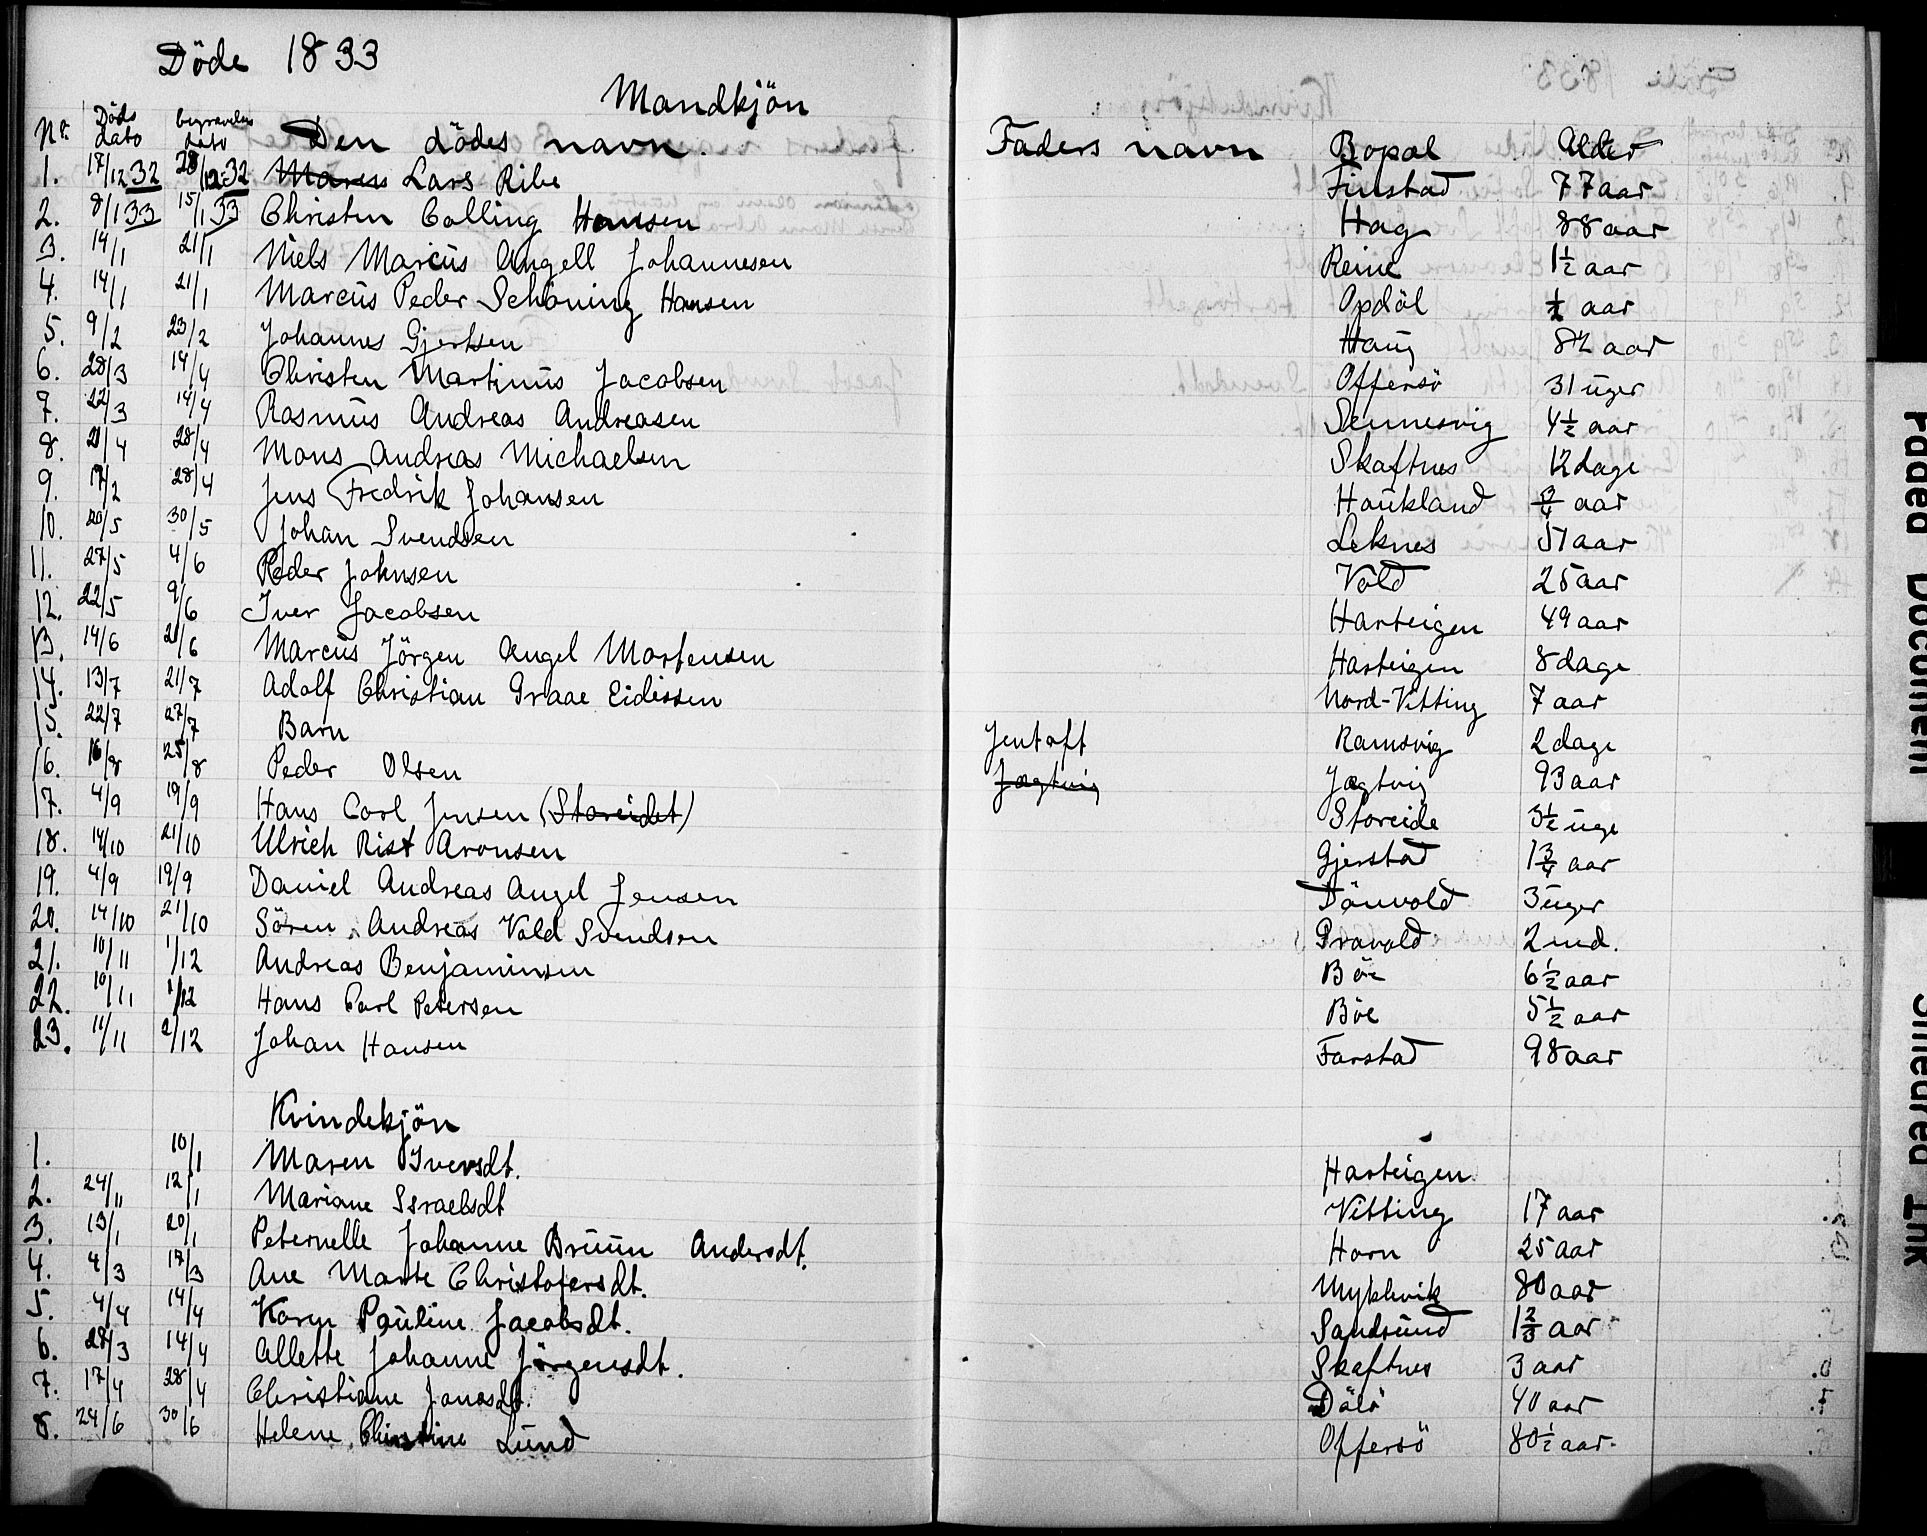 Döde 1833
Mandkjön
Nr. Döds dato begravelses dato Den dödes navn. Faders navn Bopæl Alder
1. 17/12 32 28/12 32 Marcus Lars Ribe Finstad 77 aar
2. 8/1 33 15/1 33 Christen Colling Hansen Hag 88 aar
3. 14/1 21/1 Niels Marcus Angell Johannesen Reine 1½ aar
4. 14/1 21/1 Marcus Peder Schöning Hansen Opdöl ½ aar
5. 9/2 23/2 Johannes Gjertsen Haug 82 aar
6. 28/3 14/4 Christen Martinus Jacobsen Offersö 31 uger
7. 22/3 14/4 Rasmus Andreas Andreasen Sennesvig 4½ aar
8. 21/4 28/4 Mons Andreas Michaelsen Skaftnes 12 dage
9. 17/2 28/4 Jens Fredrik Johansen Haukland ¾ aar
10. 20/5 30/5 Johan Svendsen Leknes 51 aar
11. 27/5 4/6 Peder Johnsen Vold 25 aar
12. 22/5 9/6 Iver Jacobsen Harteigen 49 aar
13. 14/6 21/6 Marcus Jörgen Angel Mortensen Harteigen 8 dage
14. 13/7 21/7 Adolf Christian Graae Eidissen Nord-Vitting 7 aar
15. 22/7 27/7 Barn Jentoft Ramsvig 2 dage
16. 16/8 25/8 Peder Olsen Jægtvig Jægtvig 93 aar
17. 4/9 19/9 Hans Carl Jensen (Storeidet) Storeide 3½ uge
18. 14/10 21/10 Ulrich Rist Aronsen Gjerstad 1¾ aar
19. 4/9 19/9 Daniel Andreas Angel Jensen Dönvold 3 uger
20. 14/10 21/10 Sören Andreas Vold Svendsen Pravold 2 md.
21. 10/11 1/12 Andreas Benjaminsen Böe 6½ aar
22. 10/11 1/12 Hans Carl Petersen Böe 5½ aar
23. 11/11 2/12 Johan Hansen Farstad 98 aar
Kvindekjön
1. 10/1 Maren Iversdt. Harteigen
2. 24/11 12/1 Mariane Israelsdt Vitting 17 aar
3. 13/1 20/1 Peternelle Johanne Bruun Andersdt. Horn 25 aar
4. 4/3 17/3 Ane Marte Christofersdt. Myklevik 80 aar
5. 4/4 14/4 Karen Pauline Jacobsdt. Sandsund 1⅔ aar
6. 28/3 14/4 Allette Johanne Jörgensdt. Skaftnes 3 aar
7. 17/4 28/4 Christiane Jonasdt. Dölö 40 aar
8. 24/6 30/6 Helene Christine Lund Offersö 80½ aar.
Faded Document
Smeared Ink